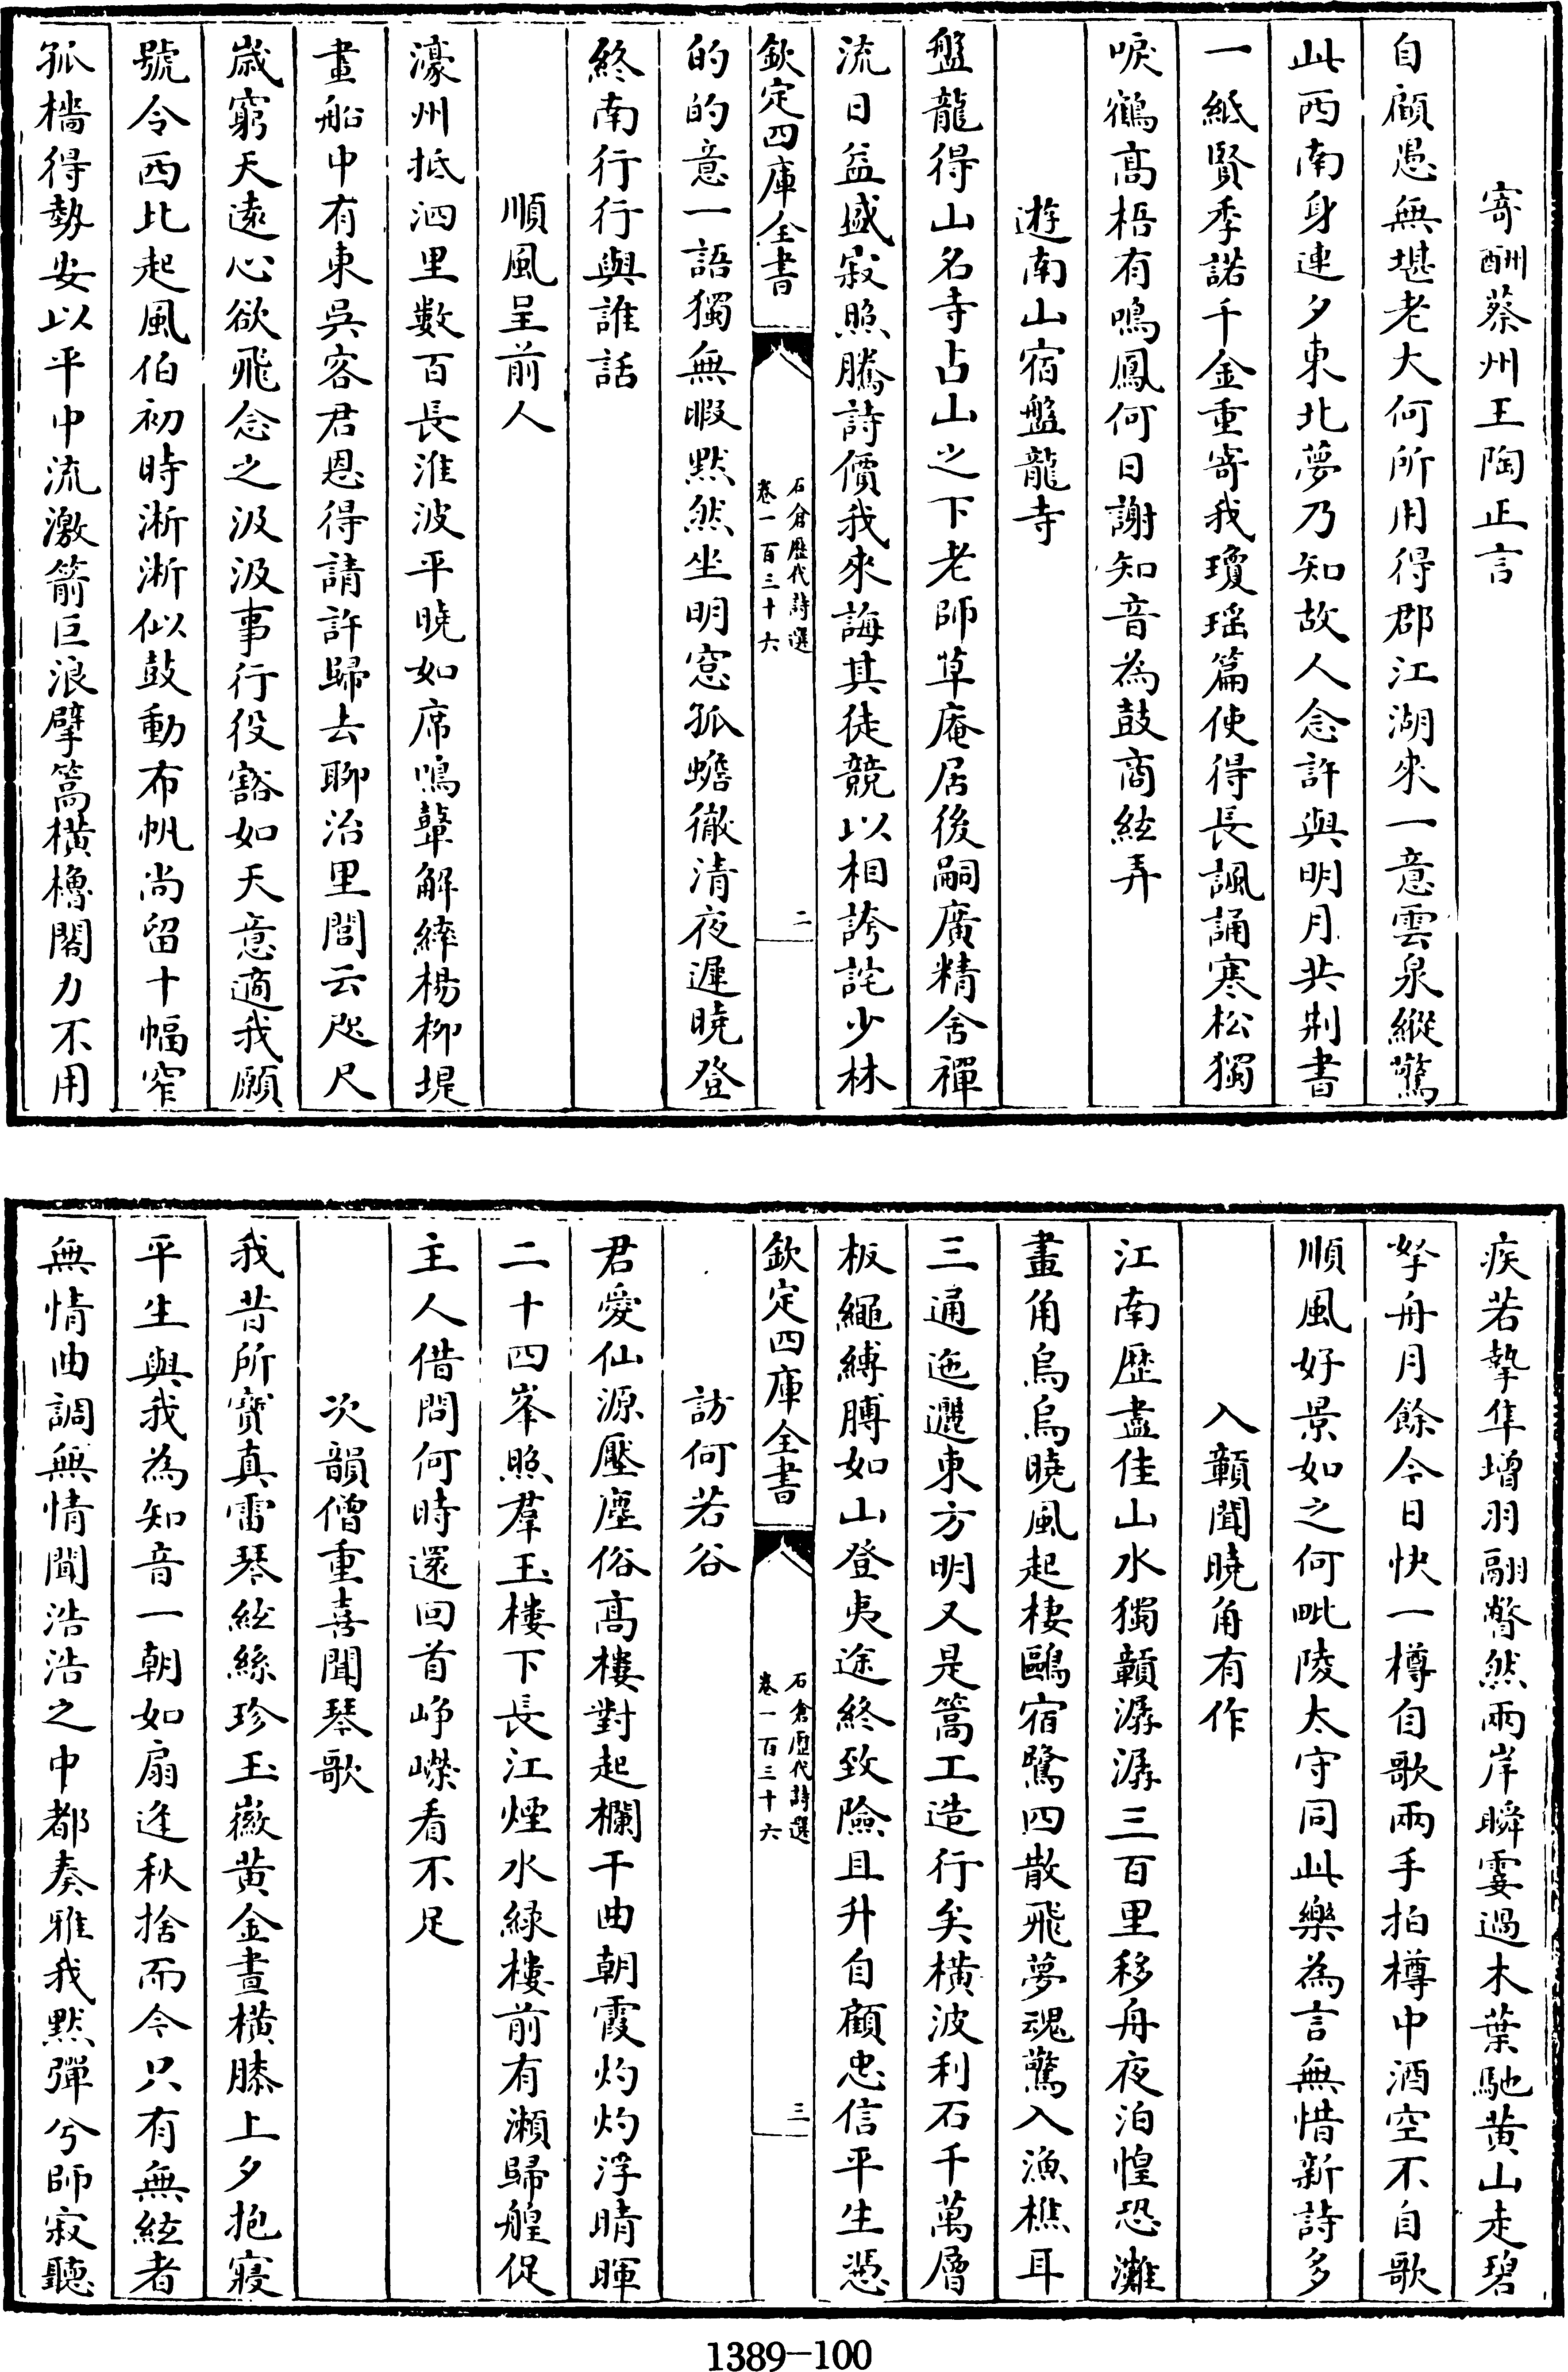 寄酬蔡州王陶正言
自顧愚無堪老大何所用得郡江湖來一意雲泉縱驚
此西南身連夕東北夢乃知故人念許與明月共荆書
一紙賢季諾千金重寄我瓊瑶篇使得長諷誦寒松獨
唳鶴髙梧有鳴鳳何日謝知音為鼓商絃弄
遊南山宿盤龍寺
盤龍得山名寺占山之下老師草庵居後嗣廣精舍禪
流日益盛寂照騰詩價我來誨其徒競以相誇詫少林
欽定四庫全書
石倉歴代詩選
卷一百三十六
二
的的意一語獨無暇黙然坐明窓孤蟾徹清夜遲曉登
終南行行與誰話
順風呈前人
濠州抵泗里數百長淮波平曉如席鳴鼙解繂楊柳堤
畫船中有東吳客君恩得請許歸去聊治里閭云咫尺
歳窮天遠心欲飛念之汲汲事行役豁如天意適我願
號令西北起風伯初時淅淅似鼓動布帆尚留十幅窄
孤檣得勢安以平中流激箭巨浪擘篙横櫓閣力不用
疾若摯隼增羽翮瞥然兩岸瞬霎過木葉馳黄山走碧
孥舟月餘今日快一樽自歌兩手拍樽中酒空不自歌
順風好景如之何毗陵太守同此樂為言無惜新詩多
入贛聞曉角有作
江南歴盡佳山水獨贛潺潺三百里移舟夜泊惶恐灘
畫角烏烏曉風起棲鷗宿鷺四散飛夢魂驚入漁樵耳
三通迤邐東方明又是篙工造行矣横波利石千萬層
板繩縛膊如山登夷途終致險且升自顧忠信平生憑
欽定四庫全書
石倉歴代詩選
卷一百三十六
三
訪何若谷
君愛仙源壓塵俗髙樓對起欄干曲朝霞灼灼浮晴暉
二十四峯照羣玉樓下長江煙水緑樓前有瀨歸艎促
主人借問何時還回首峥嶸看不足
次韻僧重喜聞琴歌
我昔所寳真雷琴絃絲珍玉徽黄金晝横膝上夕抱寢
平生與我為知音一朝如扇逢秋捨而今只有無絃者
無情曲調無情聞浩浩之中都奏雅我黙彈兮師寂聽
1389-100